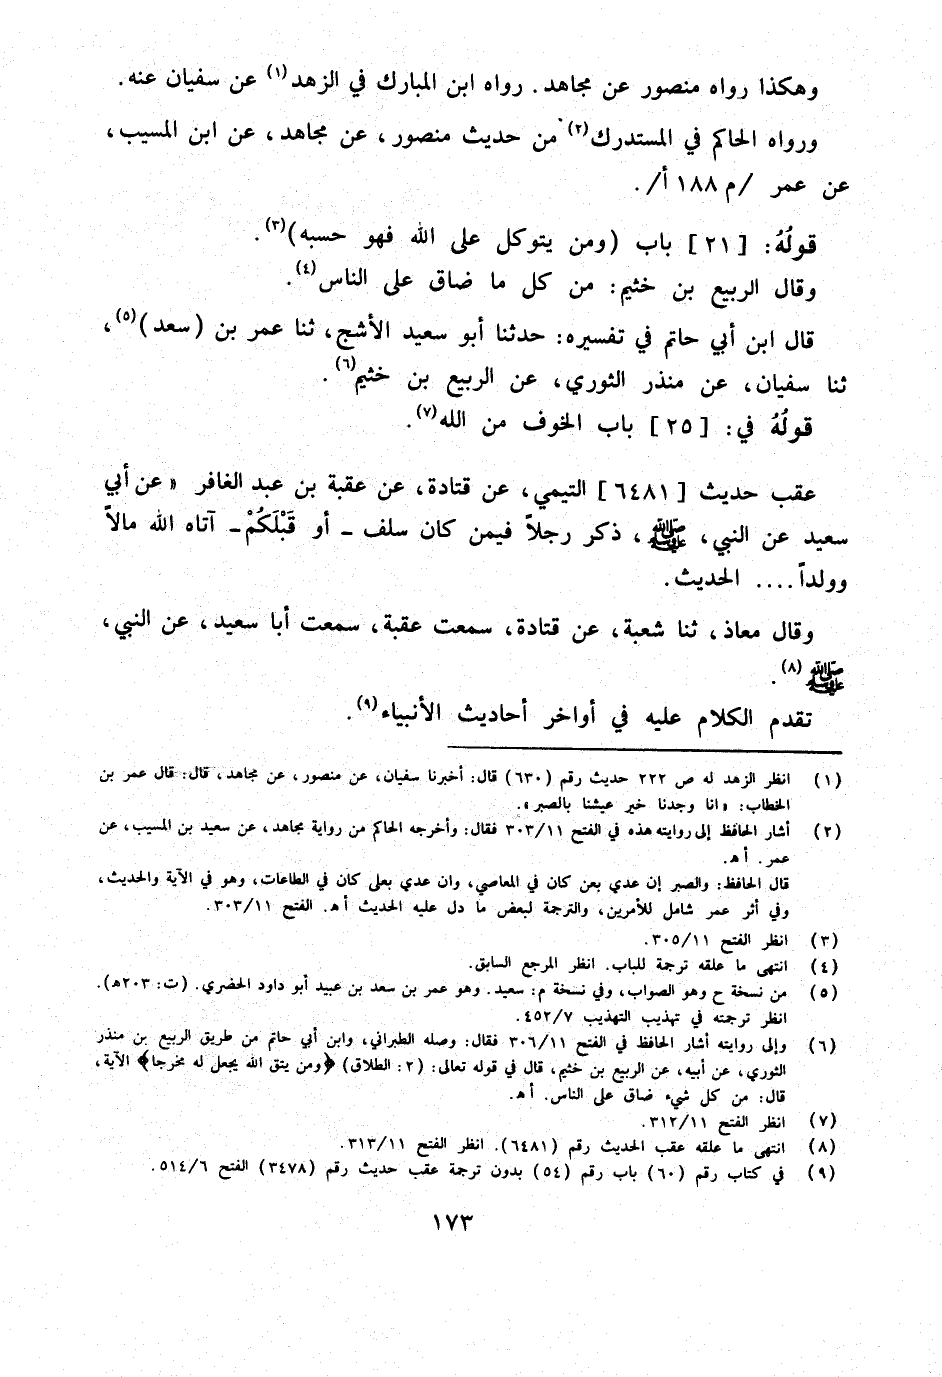 وهكذا رواه منصور عن مجاهد. رواه ابن المبارك في الزهد(١) عن سفيان عنه.
ورواه الحاكم في المستدرك(٢) من حديث منصور، عن مجاهد، عن ابن المسيب،
عن عمر /م ١٨٨ أ/.
قولُهُ: [٢١] باب (ومن يتوكل على الله فهو حسبه)(٣).
وقال الربيع بن خثيم: من كل ما ضاق على الناس(٤).
قال ابن أبي حاتم في تفسيره: حدثنا أبو سعيد الأشج، ثنا عمر بن (سعد)(٥)،
ثنا سفيان، عن منذر الثوري، عن الربيع بن خثيم(٦).
قولُهُ في: [٢٥] باب الخوف من الله(٧).
عقب حديث [٦٤٨١] التيمي، عن قتادة، عن عقبة بن عبد الغافر «عن أبي
سعيد عن النبي، ﷺ، ذكر رجلاً فيمن كان سلف ـ أو قَبْلَكُمْ ـ آتاه الله مالاً
وولداً.... الحديث.
وقال معاذ، ثنا شعبة، عن قتادة، سمعت عقبة، سمعت أبا سعيد، عن النبي،
ﷺ(٨).
تقدم الكلام عليه في أواخر أحاديث الأنبياء(٩).
(١) انظر الزهد له ص ٢٢٢ حديث رقم (٦٣٠) قال: أخبرنا سفيان، عن منصور، عن مجاهد، قال: قال عمر بن
الخطاب: «انا وجدنا خير عيشنا بالصبر».
(٢) أشار الحافظ إلى روايته هذه في الفتح ٣٠٣/١١ فقال: وأخرجه الحاكم من رواية مجاهد، عن سعيد بن المسيب، عن
عمر. أ هـ.
قال الحافظ: والصبر إن عدي بعن كان في المعاصي، وان عدي بعلى كان في الطاعات، وهو في الآية والحديث،
وفي أثر عمر شامل للأمرين، والترجمة لبعض ما دل عليه الحديث أ هـ. الفتح ٣٠٣/١١.
(٣) انظر الفتح ٣٠٥/١١.
(٤) انتهى ما علقه ترجمة للباب. انظر المرجع السابق.
(٥) من نسخة ح وهو الصواب، وفي نسخة م: سعيد. وهو عمر بن سعد بن عبيد أبو داود الحضري. (ت: ٢٠٣هـ).
انظر ترجمته في تهذيب التهذيب ٤٥٢/٧.
(٦) وإلى روايته أشار الحافظ في الفتح ٣٠٦/١١ فقال: وصله الطبراني، وابن أبي حاتم من طريق الربيع بن منذر
الثوري، عن أبيه، عن الربيع بن خثيم، قال في قوله تعالى: (٢: الطلاق) ﴿ومن يتق الله يجعل له مخرجا﴾ الآية،
قال: من كل شيء ضاق على الناس. أ هـ.
(٧) انظر الفتح ٣١٢/١١.
(٨) انتهى ما علقه عقب الحديث رقم (٦٤٨١). انظر الفتح ٣١٣/١١.
(٩) في كتاب رقم (٦٠) باب رقم (٥٤) بدون ترجمة عقب حديث رقم (٣٤٧٨) الفتح ٥١٤/٦.
١٧٣